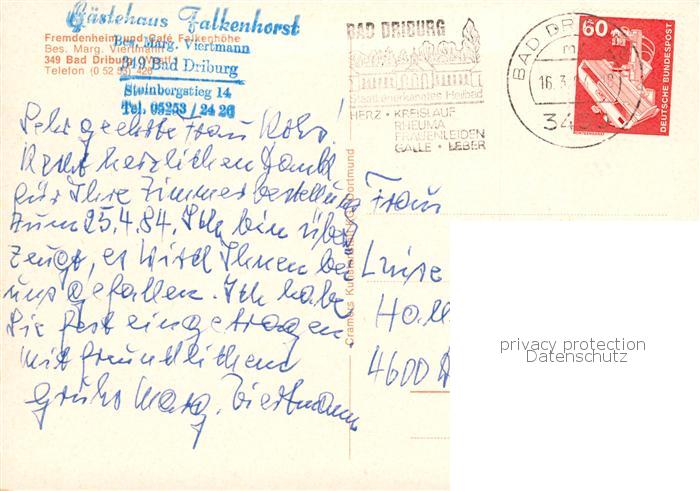 Gästehaus Falkenhorst
Bes. Marg. Viertmann
349 Bad Driburg
Steinbergstieg 14
Tel. 05253/24 26
Fremdenheim und Café Falkenhöhe
Bes. Marg. Viertmann
349 Bad Driburg (Westf.)
Telefon (0 52 53) 426
Sehr geehrte Frau
Recht herzlichen Dank
für Ihre Zimmerbestellung
zum 25.4.84. Ich bin über
zeugt, es wird Ihnen bei
uns gefallen. Ich habe
Sie fest eingetragen
Mit freundlichem
Gruß Marg. Viertmann
Cramers Kunstanstalt KG, Dortmund
BAD DRIBURG
Heilbad
HERZ • KREISLAUF
RHEUMA
FRAUENLEIDEN
GALLE • LEBER
BAD DR
16.3.
60
DEUTSCHE BUNDESPOST
Frau
Luise
Ho
4600
privacy protection
Datenschutz